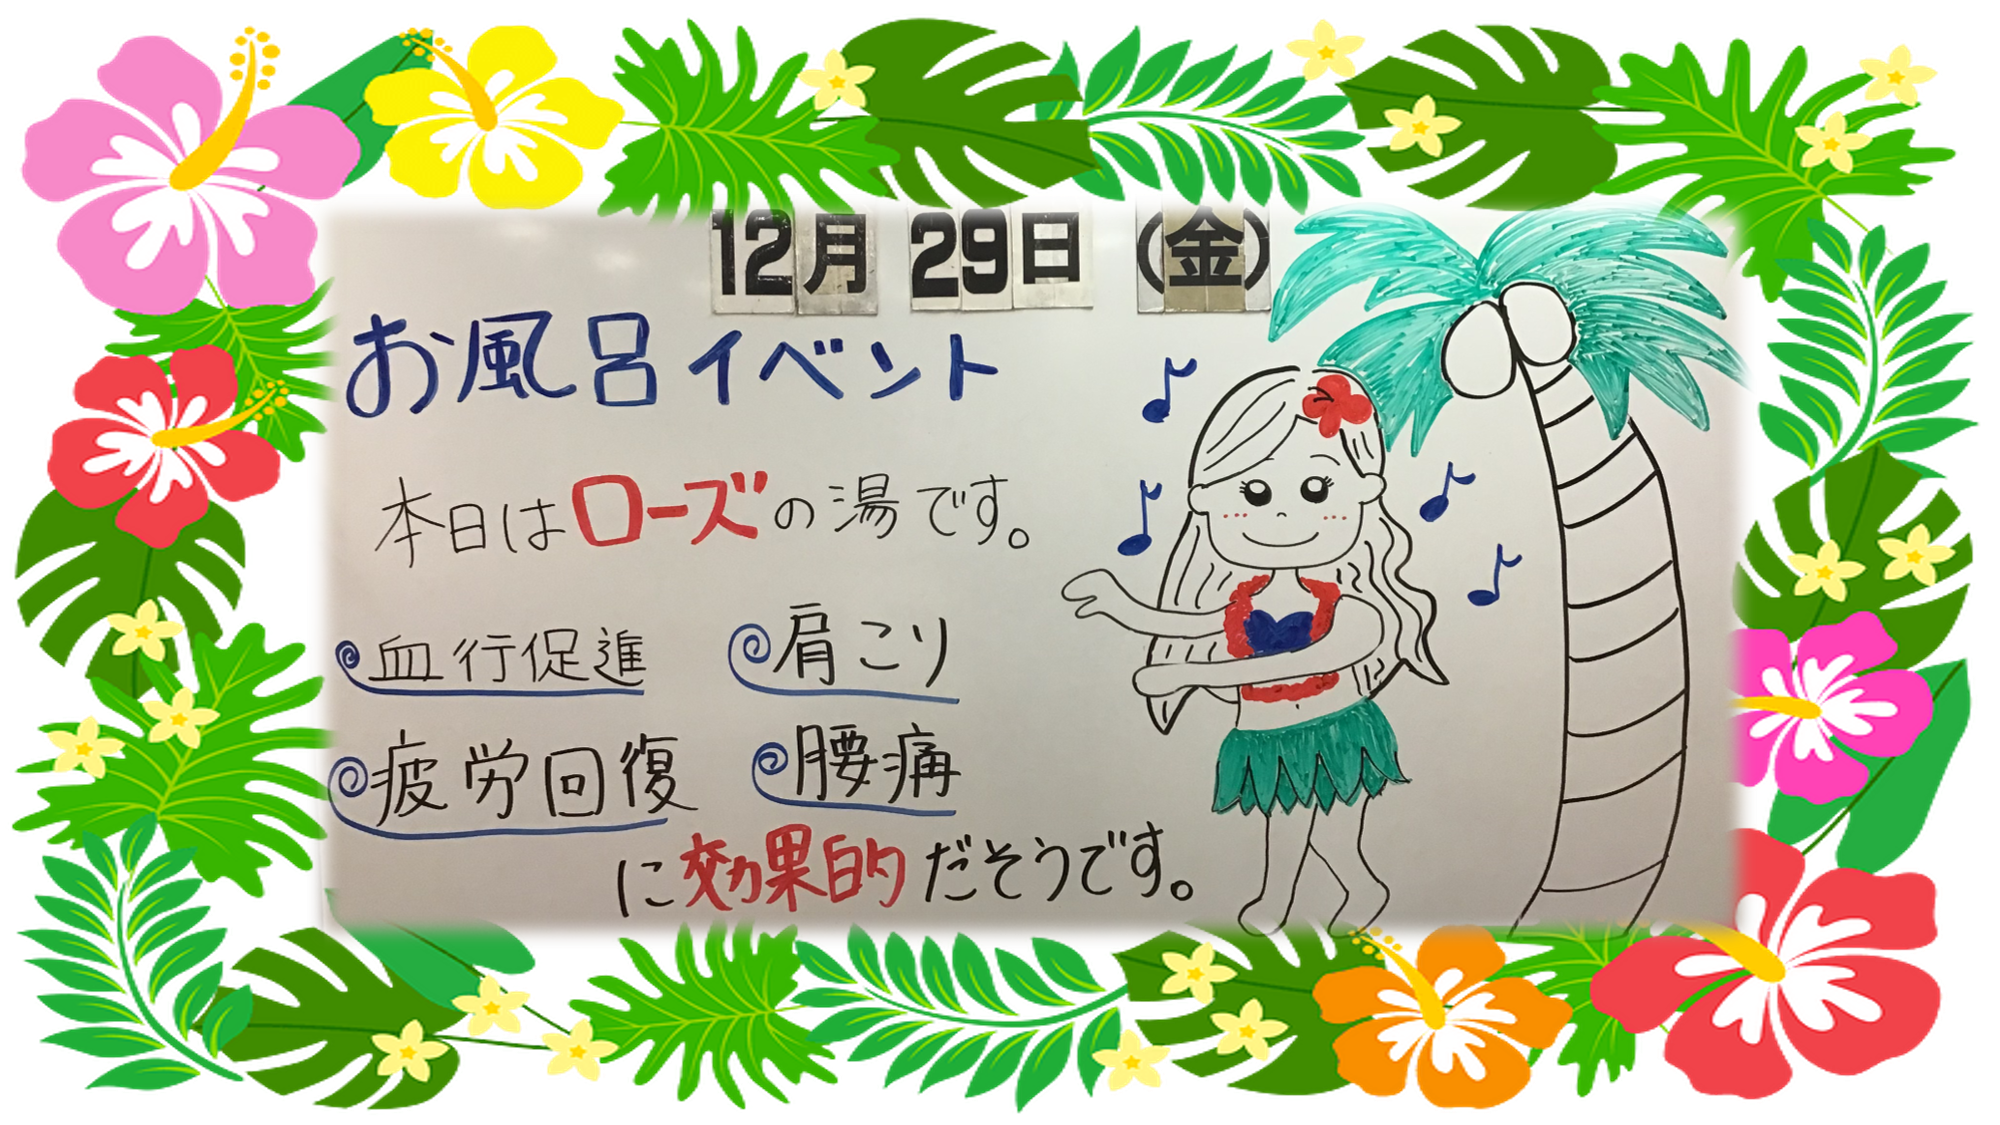 12月 29日 (金)
お風呂イベント
本日はローズの湯です。
血行促進 肩こり
疲労回復 腰痛
に効果的だそうです。